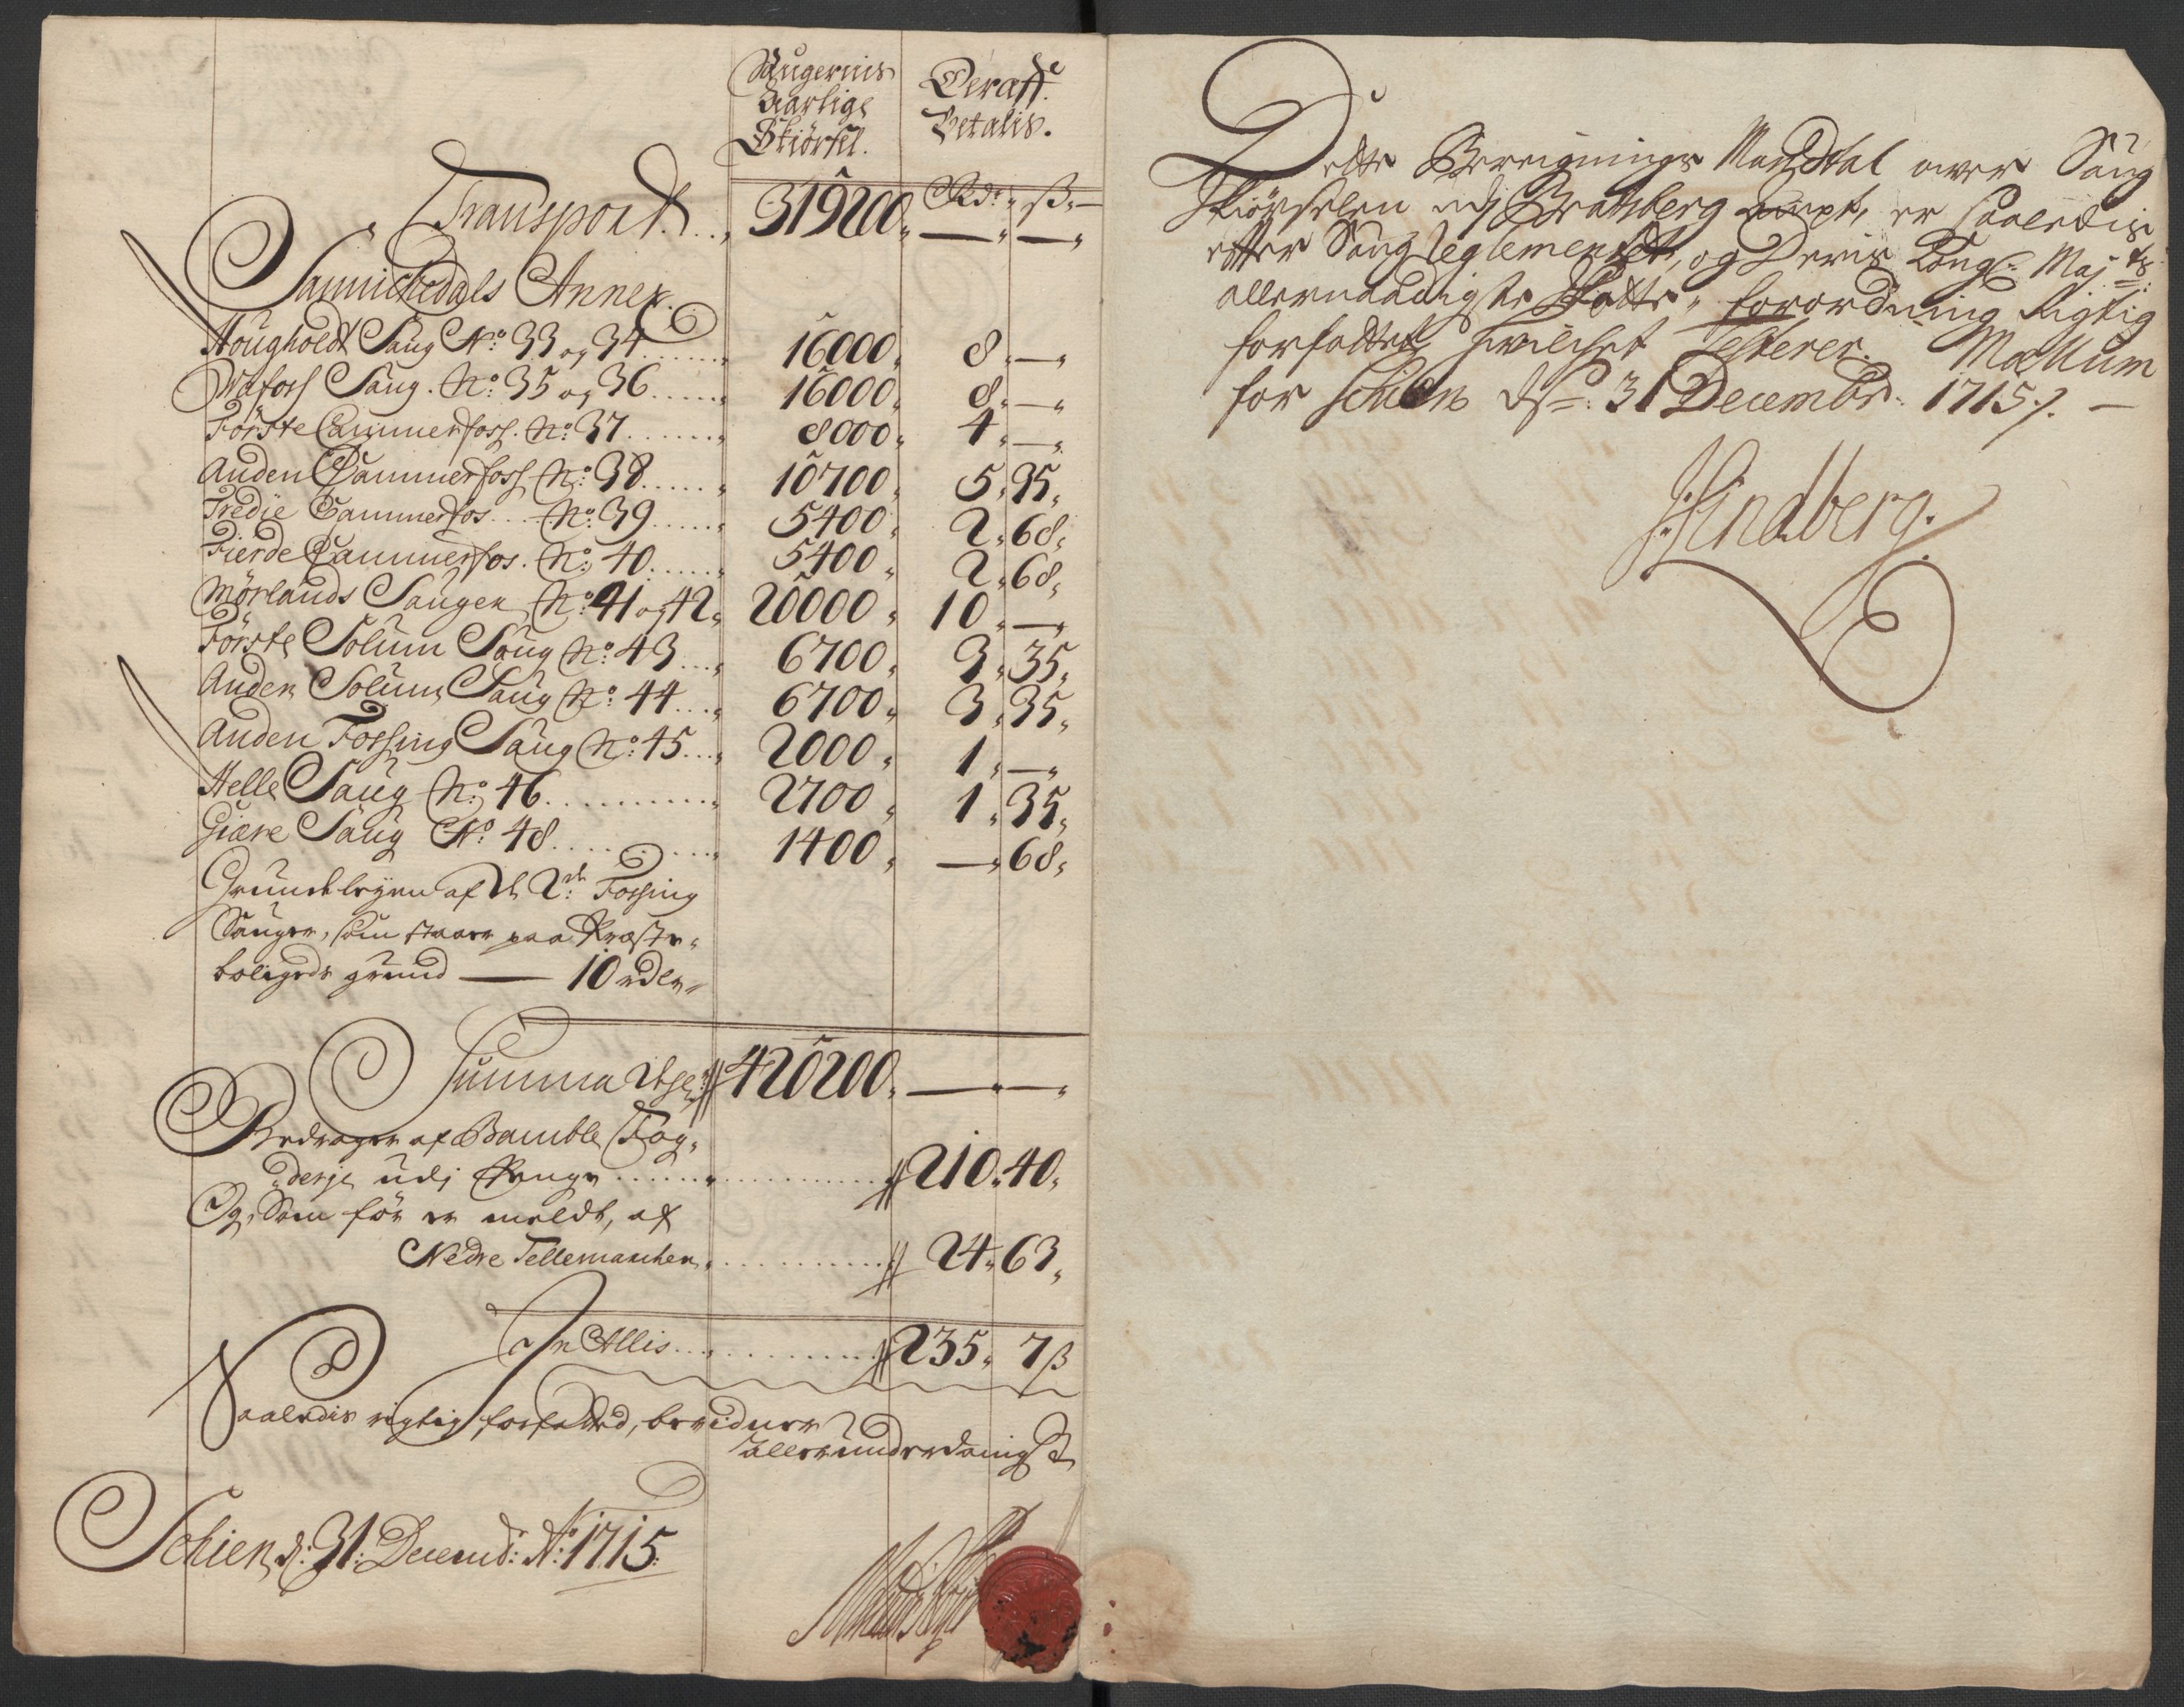 Saugernis
Aarlige
Skiörsel.
Deraff
Betalis.
Transport. 319200. Rdr. ß.
Sannichedals Annex.
Hougholdt Saug No: 33 og 34 ...... 16000. 8. —
Wafoss Saug. No: 35 og 36 ...... 16000. 8. —
Förste Cammerfoss. No: 37 ....... 8000. 4. —
Anden Cammerfoss No: 38 ..... 10700. 5. 35.
Tredie Cammerfos ... No: 39 ...... 5400. 2. 68.
Fierde Cammerfos. No: 40 ...... 5400. 2. 68.
Mörlands Saugen No: 41 og 42. 20000. 10. —
Förste Solum Saug No: 43 .... 6700. 3. 35.
Anden Solum Saug No: 44 .... 6700. 3. 35.
Anden Fossing Saug No: 45 ... 2000. 1. —
Helle Saug No: 46 .......... 2700. 1. 35.
Giære Saug No: 48 .......... 1400. —. 68.
Grundleyen af de 2de Fossing
Sauger, som staar paa Præste-
boligeds grund — 10 rdlr
Summa 420200. — —
Bedrager af Bamble Fog-
derje udj Penge ...... 210. 40.
Og, Som för er meldt, af
Nedre Tellemarchen .......... 24. 63.
In Allis ........... 235. 7 ß
Saaledis rigtig forfatted, bevidner
allerunderdanigst
Schien d: 31: Decemb: Ao: 1715.
Dette Beregnings Mandtal over Saug
Skiörselen udj Bratsberg Ampt, er saaledis
efter Saug Reglementet, og Deris Kongl: Maj:ts
allernaadigste Skatte-forordning Rigtig
forfattet, hvilchet Testerer. Mællum
for Schien d: 31 Decembr. 1715. —
Hindberg.